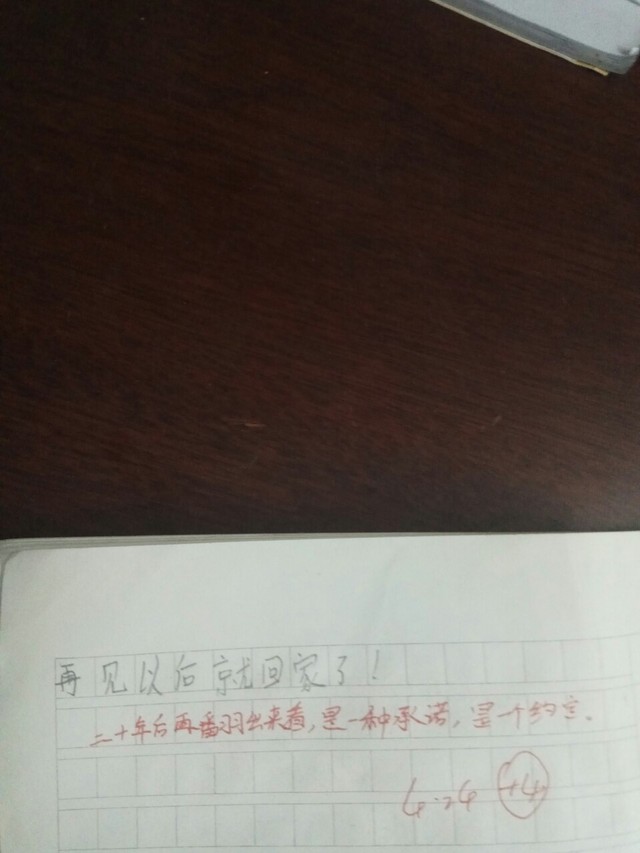 再见以后就回家了！
二十年后再翻出来看，是一种承诺，是一个约定。
4.24 +4